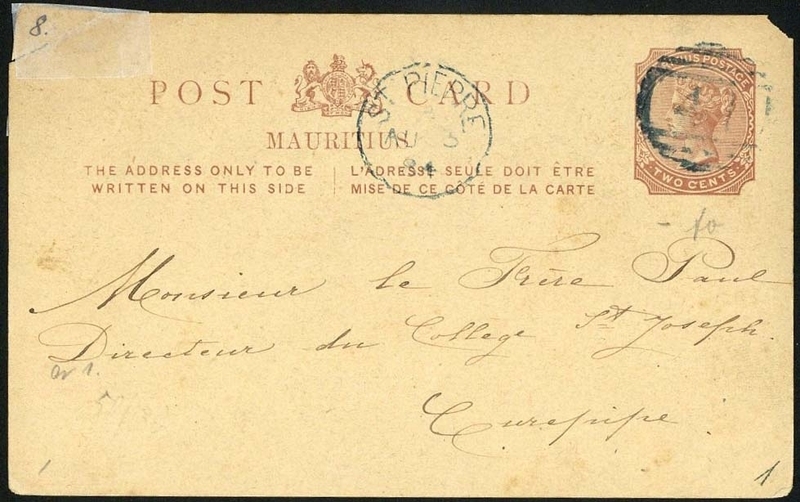 8.
POST CARD
MAURITIUS
THE ADDRESS ONLY TO BE
WRITTEN ON THIS SIDE
L'ADRESSE SEULE DOIT ÊTRE
MISE DE CE CÔTÉ DE LA CARTE
ST PIERRE
AU 3
84
POSTAGE
TWO CENTS
Monsieur le Frère Paul
Directeur du Collège St Joseph.
Curepipe
1